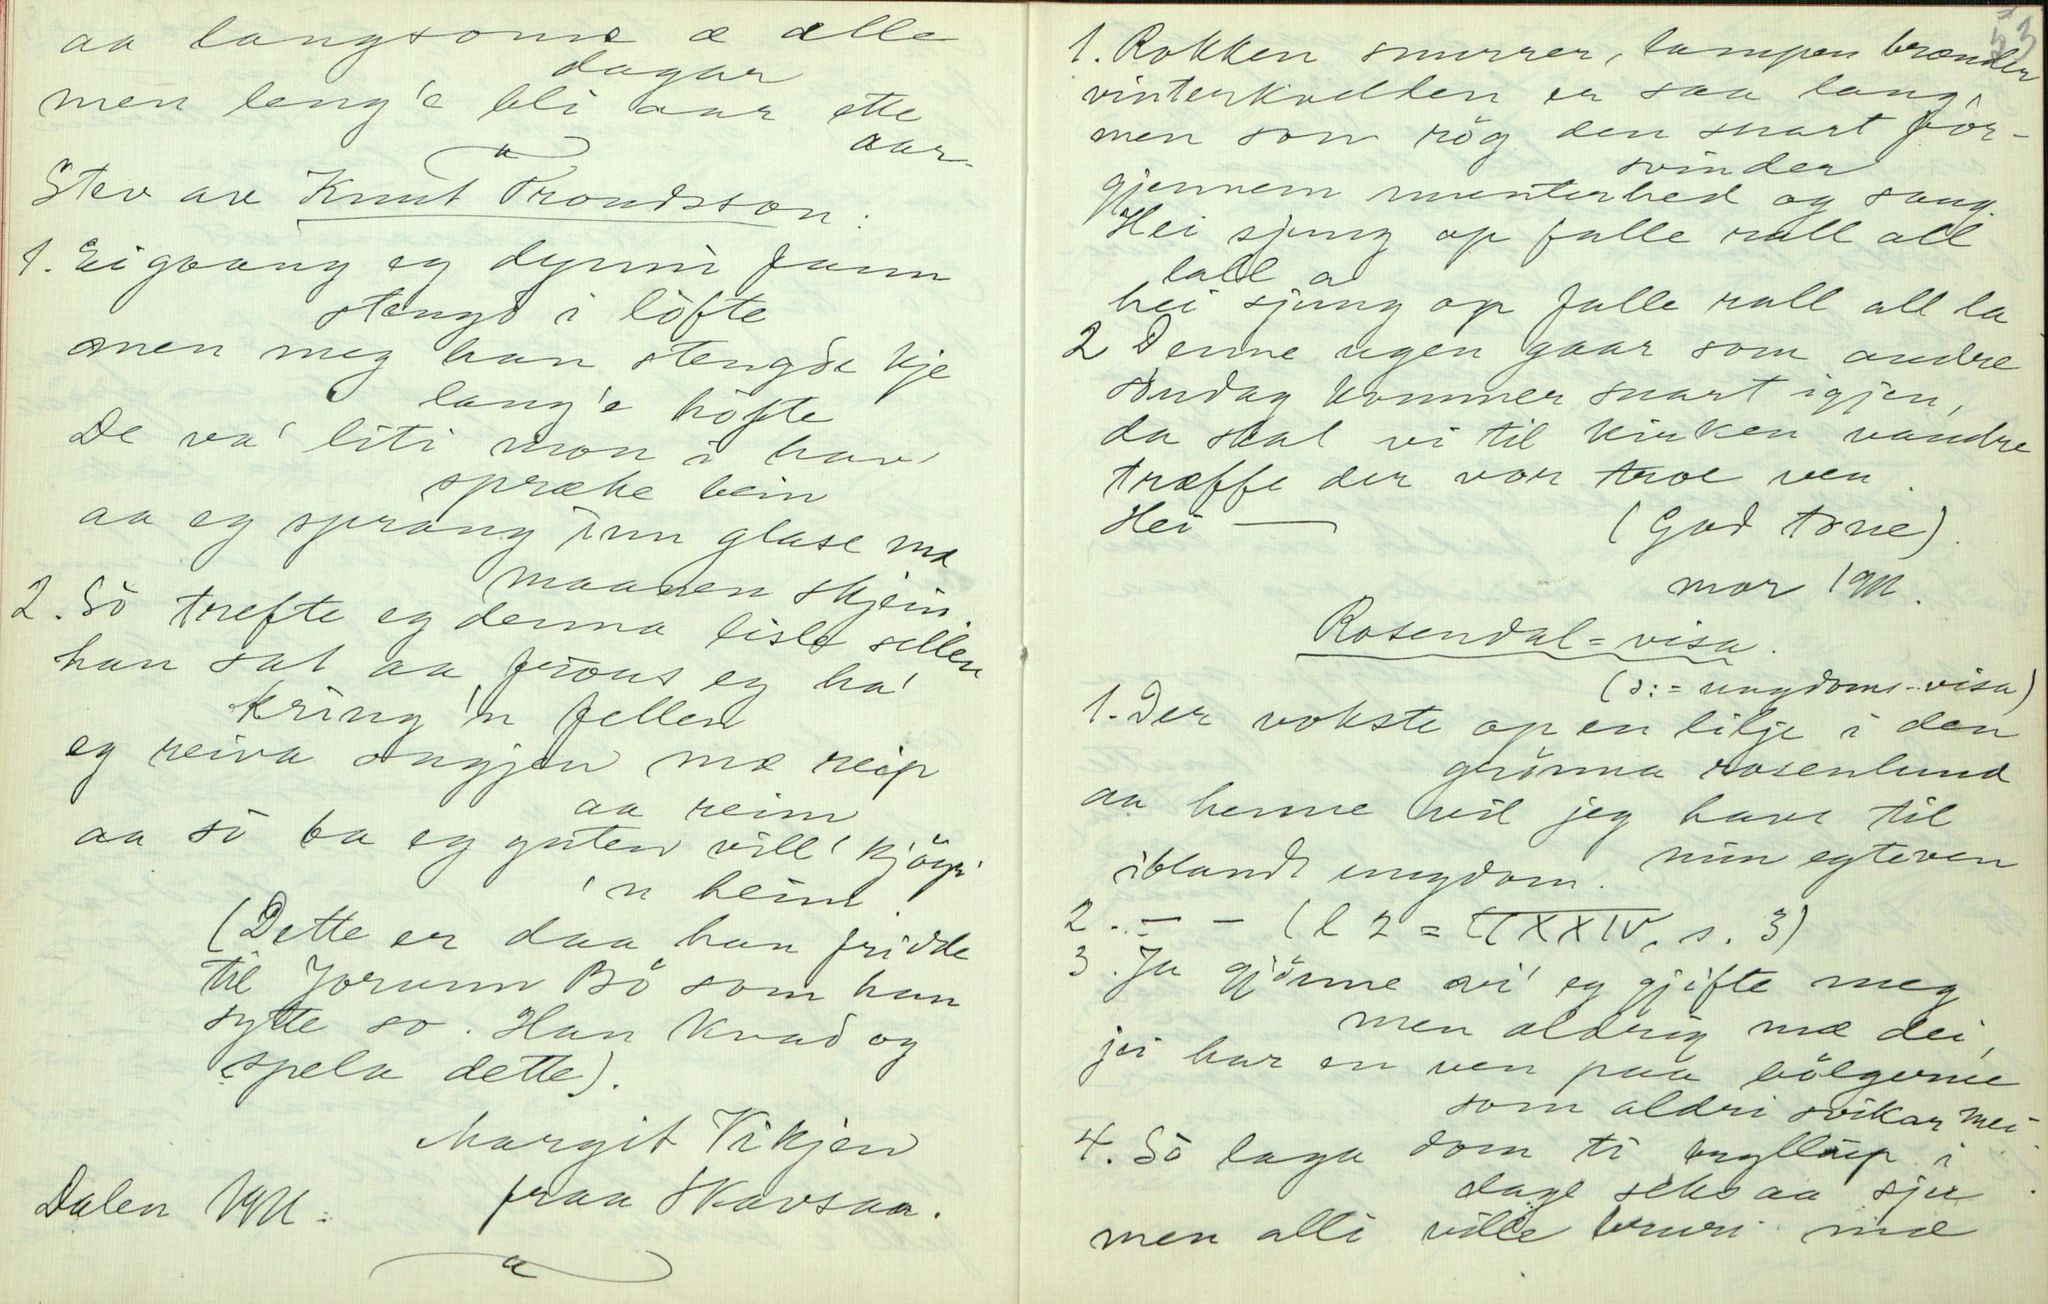 aa langsome æ alle
dagar
men leng'e bli aar ette
aar.
Stev av Knut Trondsson:
1. Ei gaang eg dynni fann
stengd i löfte
men meg han stengde kje
lang'e höfte
De va' liti mon i hav'
spræke bein
aa eg sprang inn glase mæ
maanen skjein.
2. Sö trefte eg denna lisle sellen
han sat aa fraus eg ha'
kring 'n fellen
eg reiva ongjen mæ reip
aa reim
aa sö ba eg guten vill' kjöyr'
'n heim.
(Dette er daa han fridde
til Jorunn Bö som han
sytte so. Han kvad og
spela dette).
Margit Vikjen
Dalen fraa Skavsaa.
53
1. Rokken snurrer, lampen brænder
vinterkvelden er saa lang,
men som rög den snart for-
svinder
gjennem munterhed og sang.
Hei sjung op falle rall all
lall a
hei sjung op falle rall all la
2 Denne ugen gaar som andre
söndag kommer snart igjen,
da skal vi til kirken vandre
træffe der vor troe ven.
Hei — (God tone).
mor
Rosendal=visa.
(ɔ: = ungdoms-visa)
1. Der vokste op en lilje i den
grönna rosenlund
aa henne vil jeg have til
min egteven
iblandt ungdom.
2. — — (l 2 = CCXXIV, s. 3)
3. Ja gjönne vi' eg gjifte meg
men aldrig mæ dei,
jei har en ven paa bölgerne
som aldri svikar mei.
4. Sö laga dom ti bryllöip i
dage seks aa sju
men alli ville bruri mæ